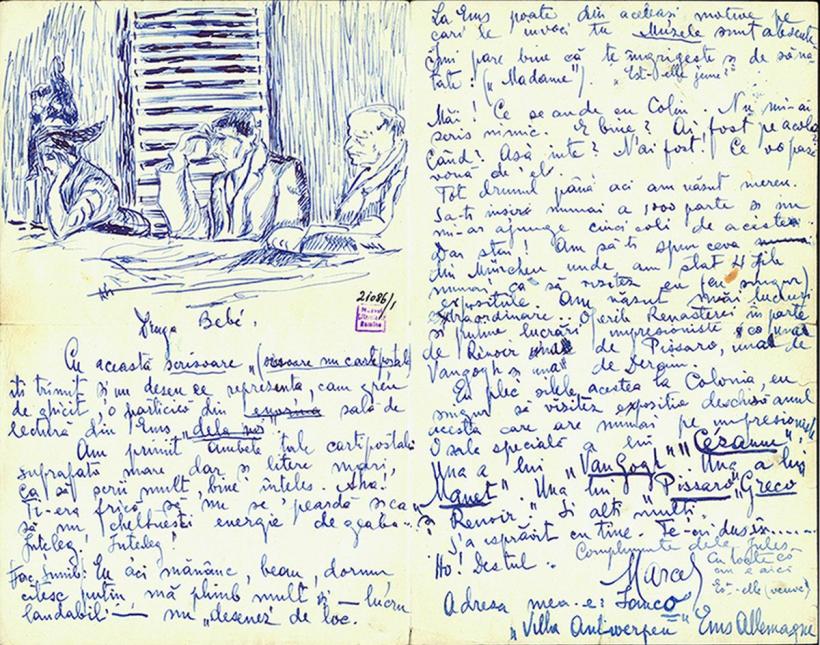 21086/1
Draga Bebé.
Cu această scrisoare „(scrisoare nu cartpostală
iti trimit si un desen ce reprezenta, cam greu
de ghicit, o particică din sala de
lectură din Ems „dela noi
Am primit Ambele tale cartipostale
suprafată mare dar si litere mari,
ca să scrii mult, bine înteles. Aha!
Ti-era frică să nu se peardă si ca
să nu cheltuesti energie de geaba
Înteleg! Înteleg!
Eu aci mănânc, beau, dormu
citesc putin, mă plimb mult si — lucru
laudabil — nu „desenez" de loc.
La Ems poate din aceleasi motive pe
cari le invoci tu Muzele sunt absente
Îmi pare bine că te îngrigeste si de sănă
tate: („Madame"). "Est-elle jeune?"
Măi! Ce se aude cu Colin. Nu mi-ai
scris nimic. E bine? Ai fost pe acolo
Când? Asà inte? N'ai fost! Ce vă pasă
vouă de el.
Tot drumul până aci am văzut mereu.
Sa-ti insir numai a 1000 parte si nu
mi-ar ajunge cinci coli de acestea.
Dar stai! Am să-ti spun ceva
din München unde am stat 4 zile
numai ca să vizitez eu (eu singur)
expozitiile. Am văzut lucruri
extraordinare.. Operile Renasterei în parte
si putine lucrări impresioniste
de Renoir de Pissaro, una de
Vangogh si una de Derain.
Eu plec zilele acestea la Colonia, eu
singur să vizitez expozitia deschisă anul
acesta care are numai pe impresionisti
O sală specială a lui „Cezanne"
Una a lui „Van Gogh" Una a lui
Manet". Una lui „Pissaro" „Greco
si Renoir." Si alti multi.
S'a isprăvit cu tine. Te-oi dus în......
Complimente dela Jules
Ho! Destul.
Cu toate că
nu e aici
Marcel
Est-elle (veuve)
Adresa mea e: Iancu
„Villa Antwerpen" Ems Allemagne